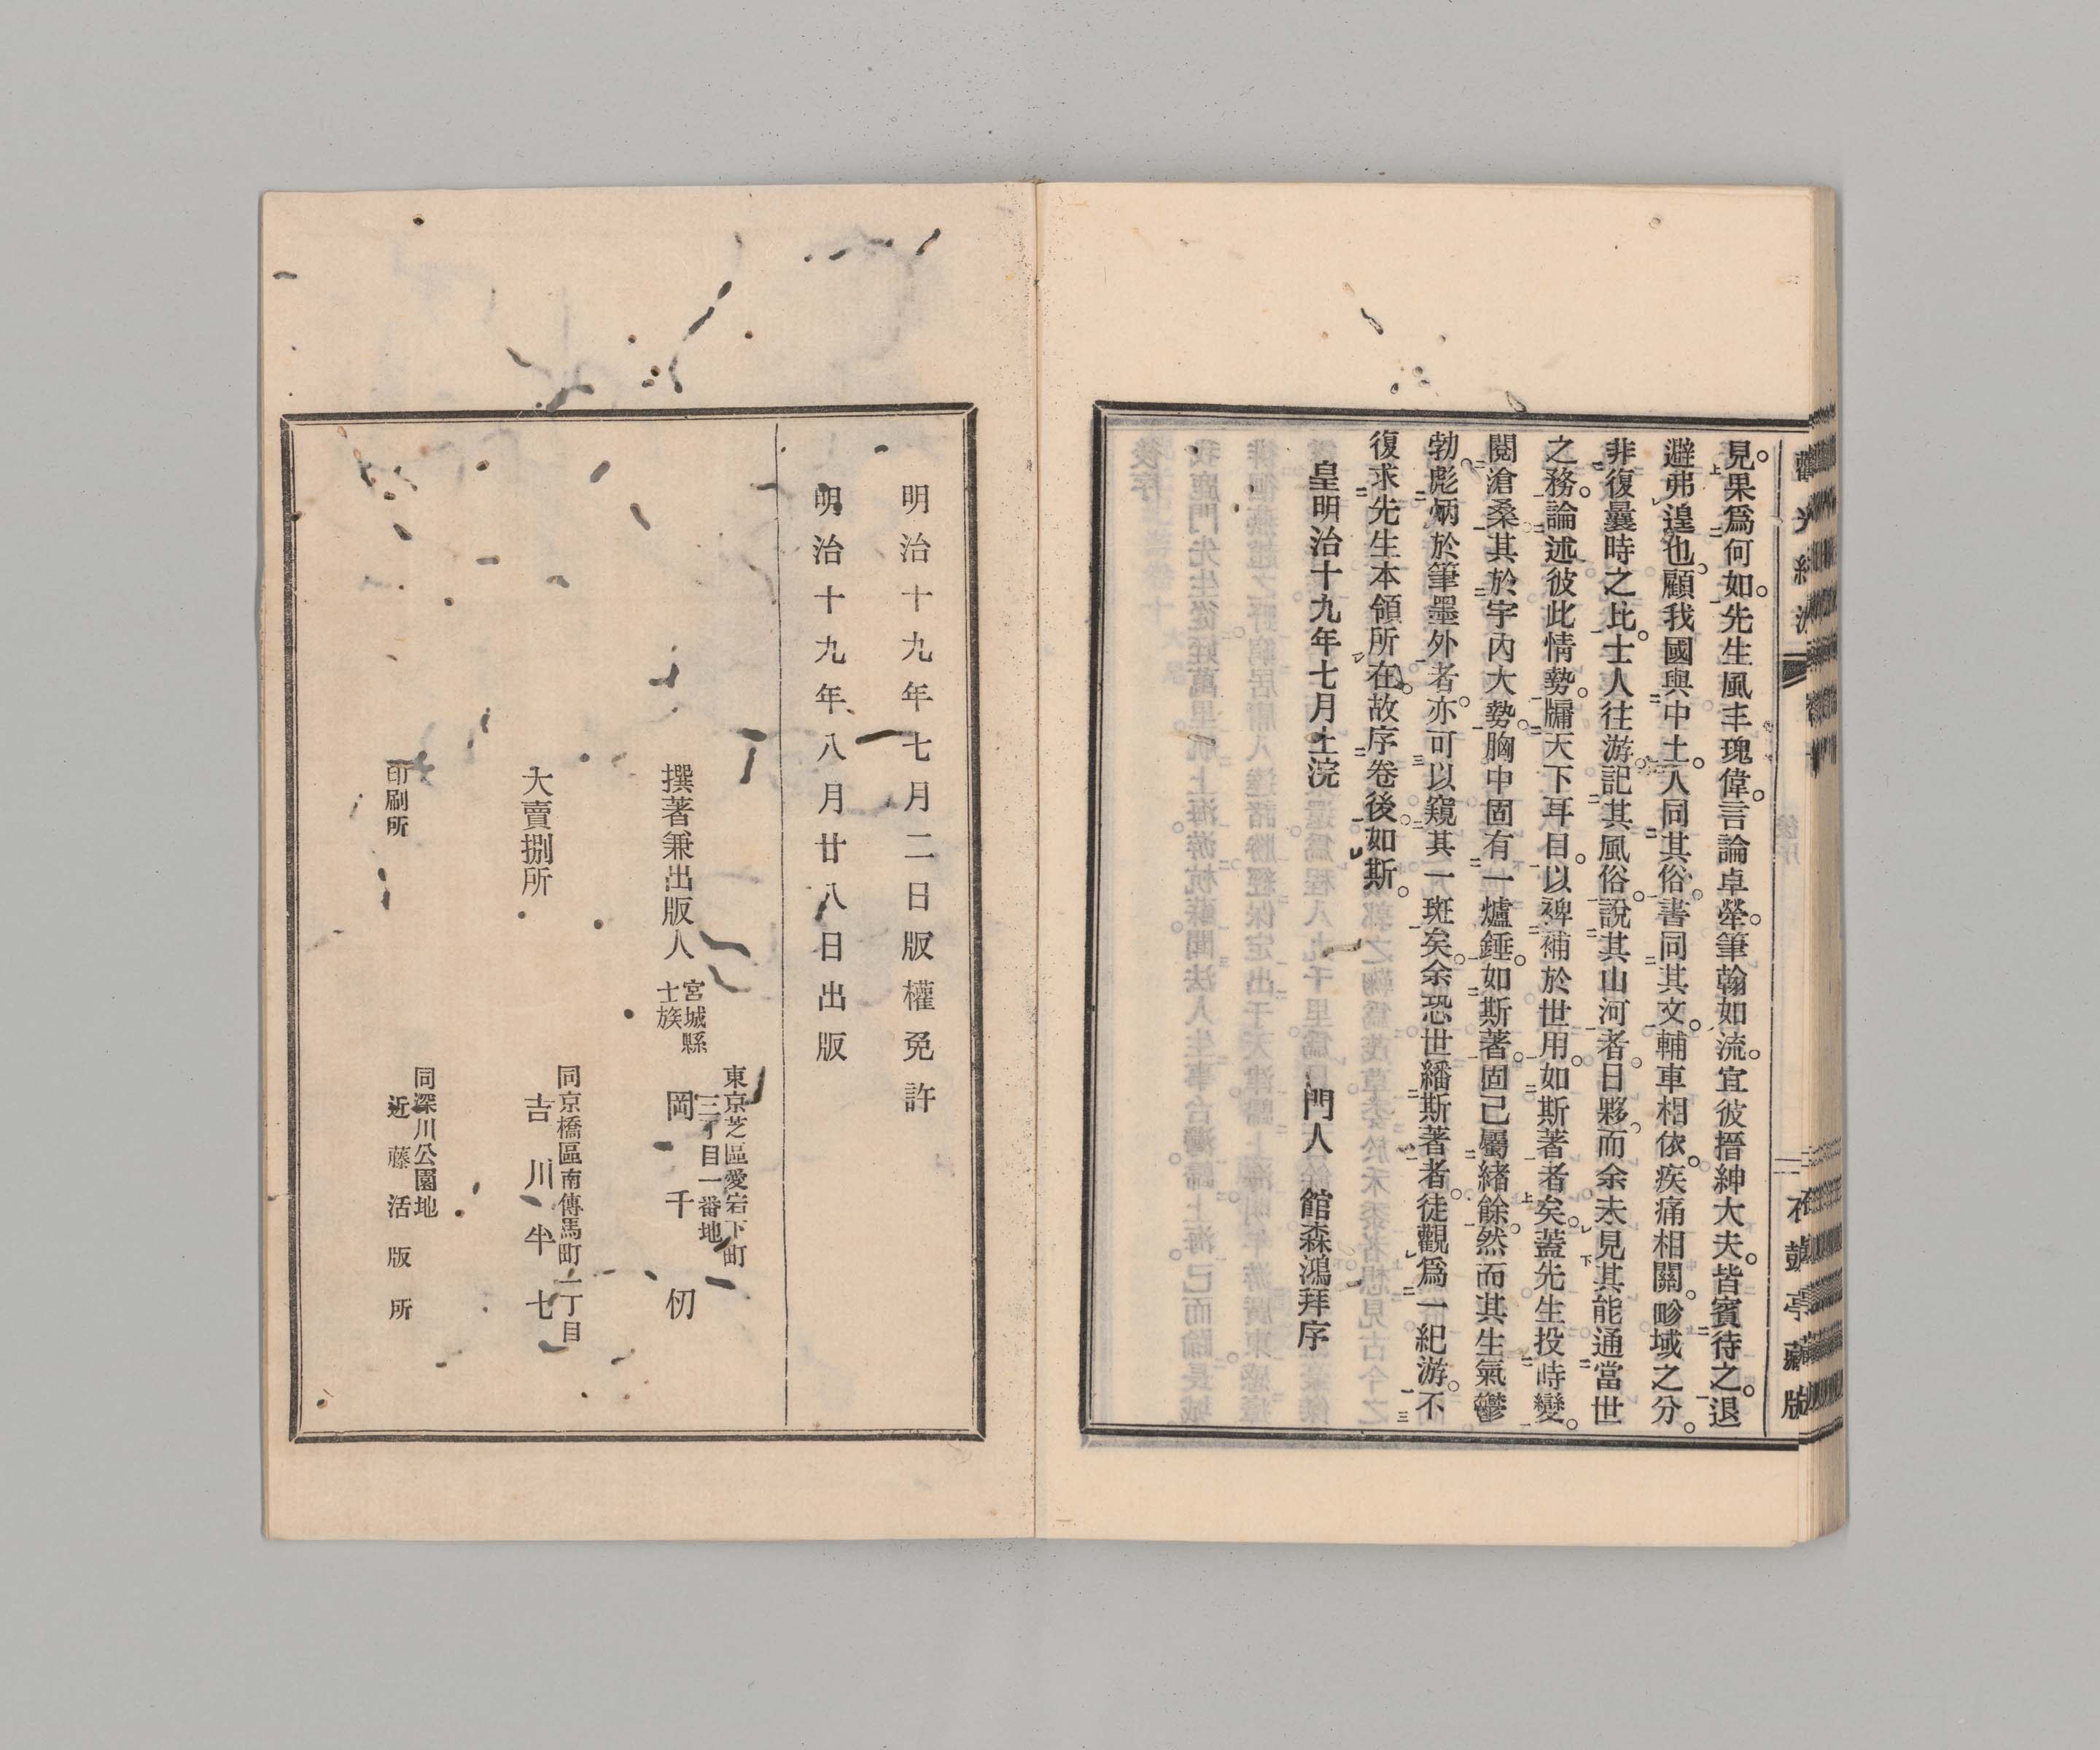 見果爲何如先生風丰瑰偉言論卓犖筆翰如流宜彼搢紳大夫皆賓待之退
避弗遑也顧我國與中土人同其俗書同其文輔車相依疾痛相關畛域之分
非復曩時之比士人往游記其風俗說其山河者日夥而余未見其能通當世
之務論述彼此情勢牖天下耳目以裨補於世用如斯著者矣蓋先生投時變
閱滄桑其於宇內大勢胸中固有一爐錘如斯著固已屬緖餘然而其生氣鬱
勃彪炳於筆墨外者亦可以窺其一斑矣余恐世繙斯著者徒觀爲一紀游不
復求先生本領所在故序卷後如斯
皇明治十九年七月上浣
門人 館森鴻拜序
明治十九年七月二日版權免許
明治十九年八月廿八日出版
撰著兼出版人
宮城縣
士族
東京芝區愛宕下町
三丁目一番地
岡千仞
大賣捌所
同京橋區南傳馬町一丁目
吉川半七
印刷所
同深川公園地
近藤活版所